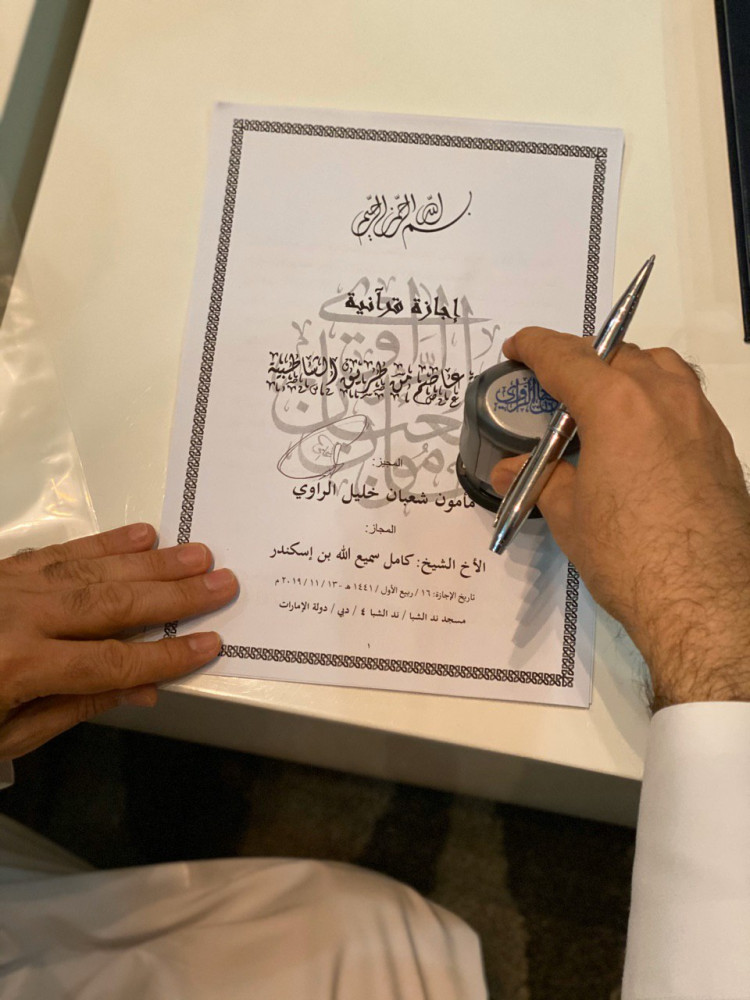 بسم الله الرحمن الرحيم
إجازة قرآنية
عاصم من طريق الشاطبية
المجيز:
مأمون شعبان خليل الراوي
المجاز:
الأخ الشيخ: كامل سميع الله بن إسكندر
تاريخ الإجازة: ١٦ / ربيع الأول / ١٤٤١ هـ - ١٣ / ١١ / ٢٠١٩ م
مسجد ند الشبا / ند الشبا ٤ / دبي / دولة الإمارات
١